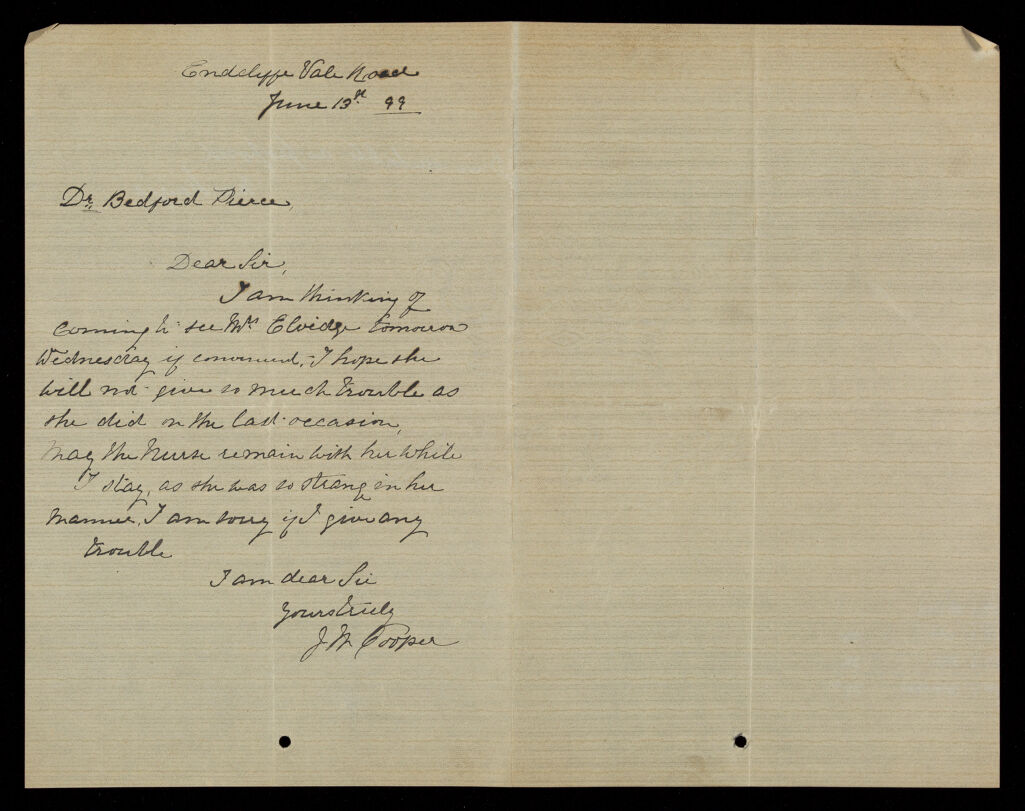 Endclyffe Vale Road
June 13th. 99
Dr. Bedford Pierce,
Dear Sir,
I am thinking of
coming to see Mrs Elvidge tomorrow
Wednesday if convenient, I hope she
will not give so much trouble as
she did on the last occasion,
may the Nurse remain with her while
I stay, as she was so strange in her
manner, I am sorry if I give any
trouble
I am dear Sir
yours truly
J W Cooper